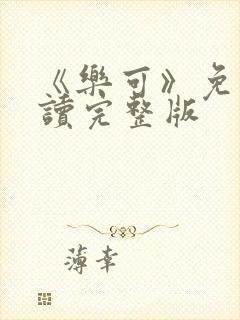 《樂可》免
讀完整版
薄幸